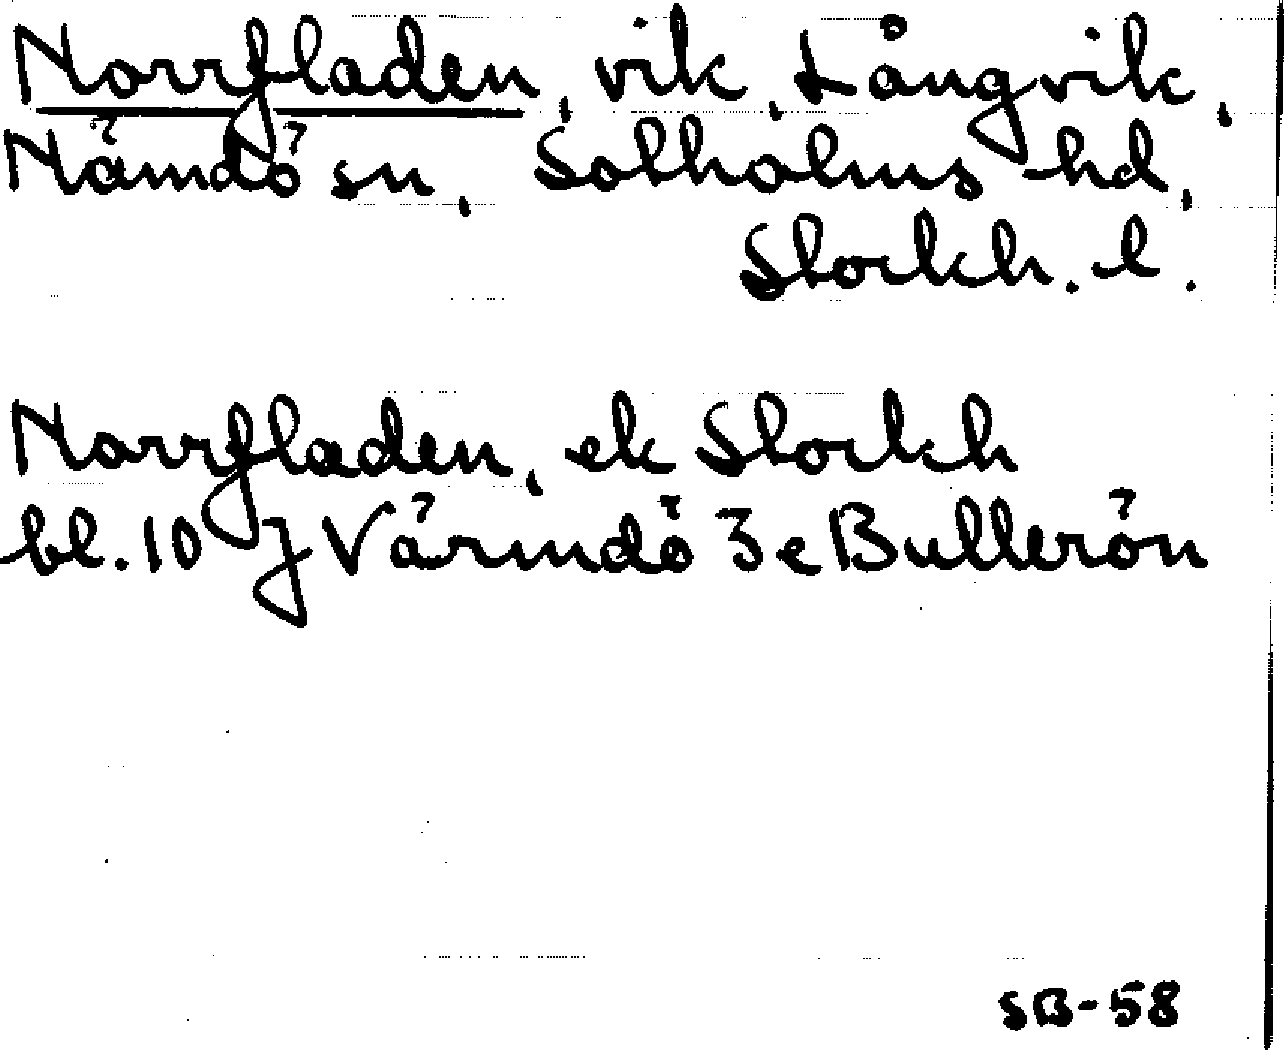 Norrfladen, vik, Långvik,
Nämdö sn, Sotholms hd,
Stockh. l.
Norrfladen, ek Stockh
bl. 10 J Värmdö 3 e Bullerön
SB-58